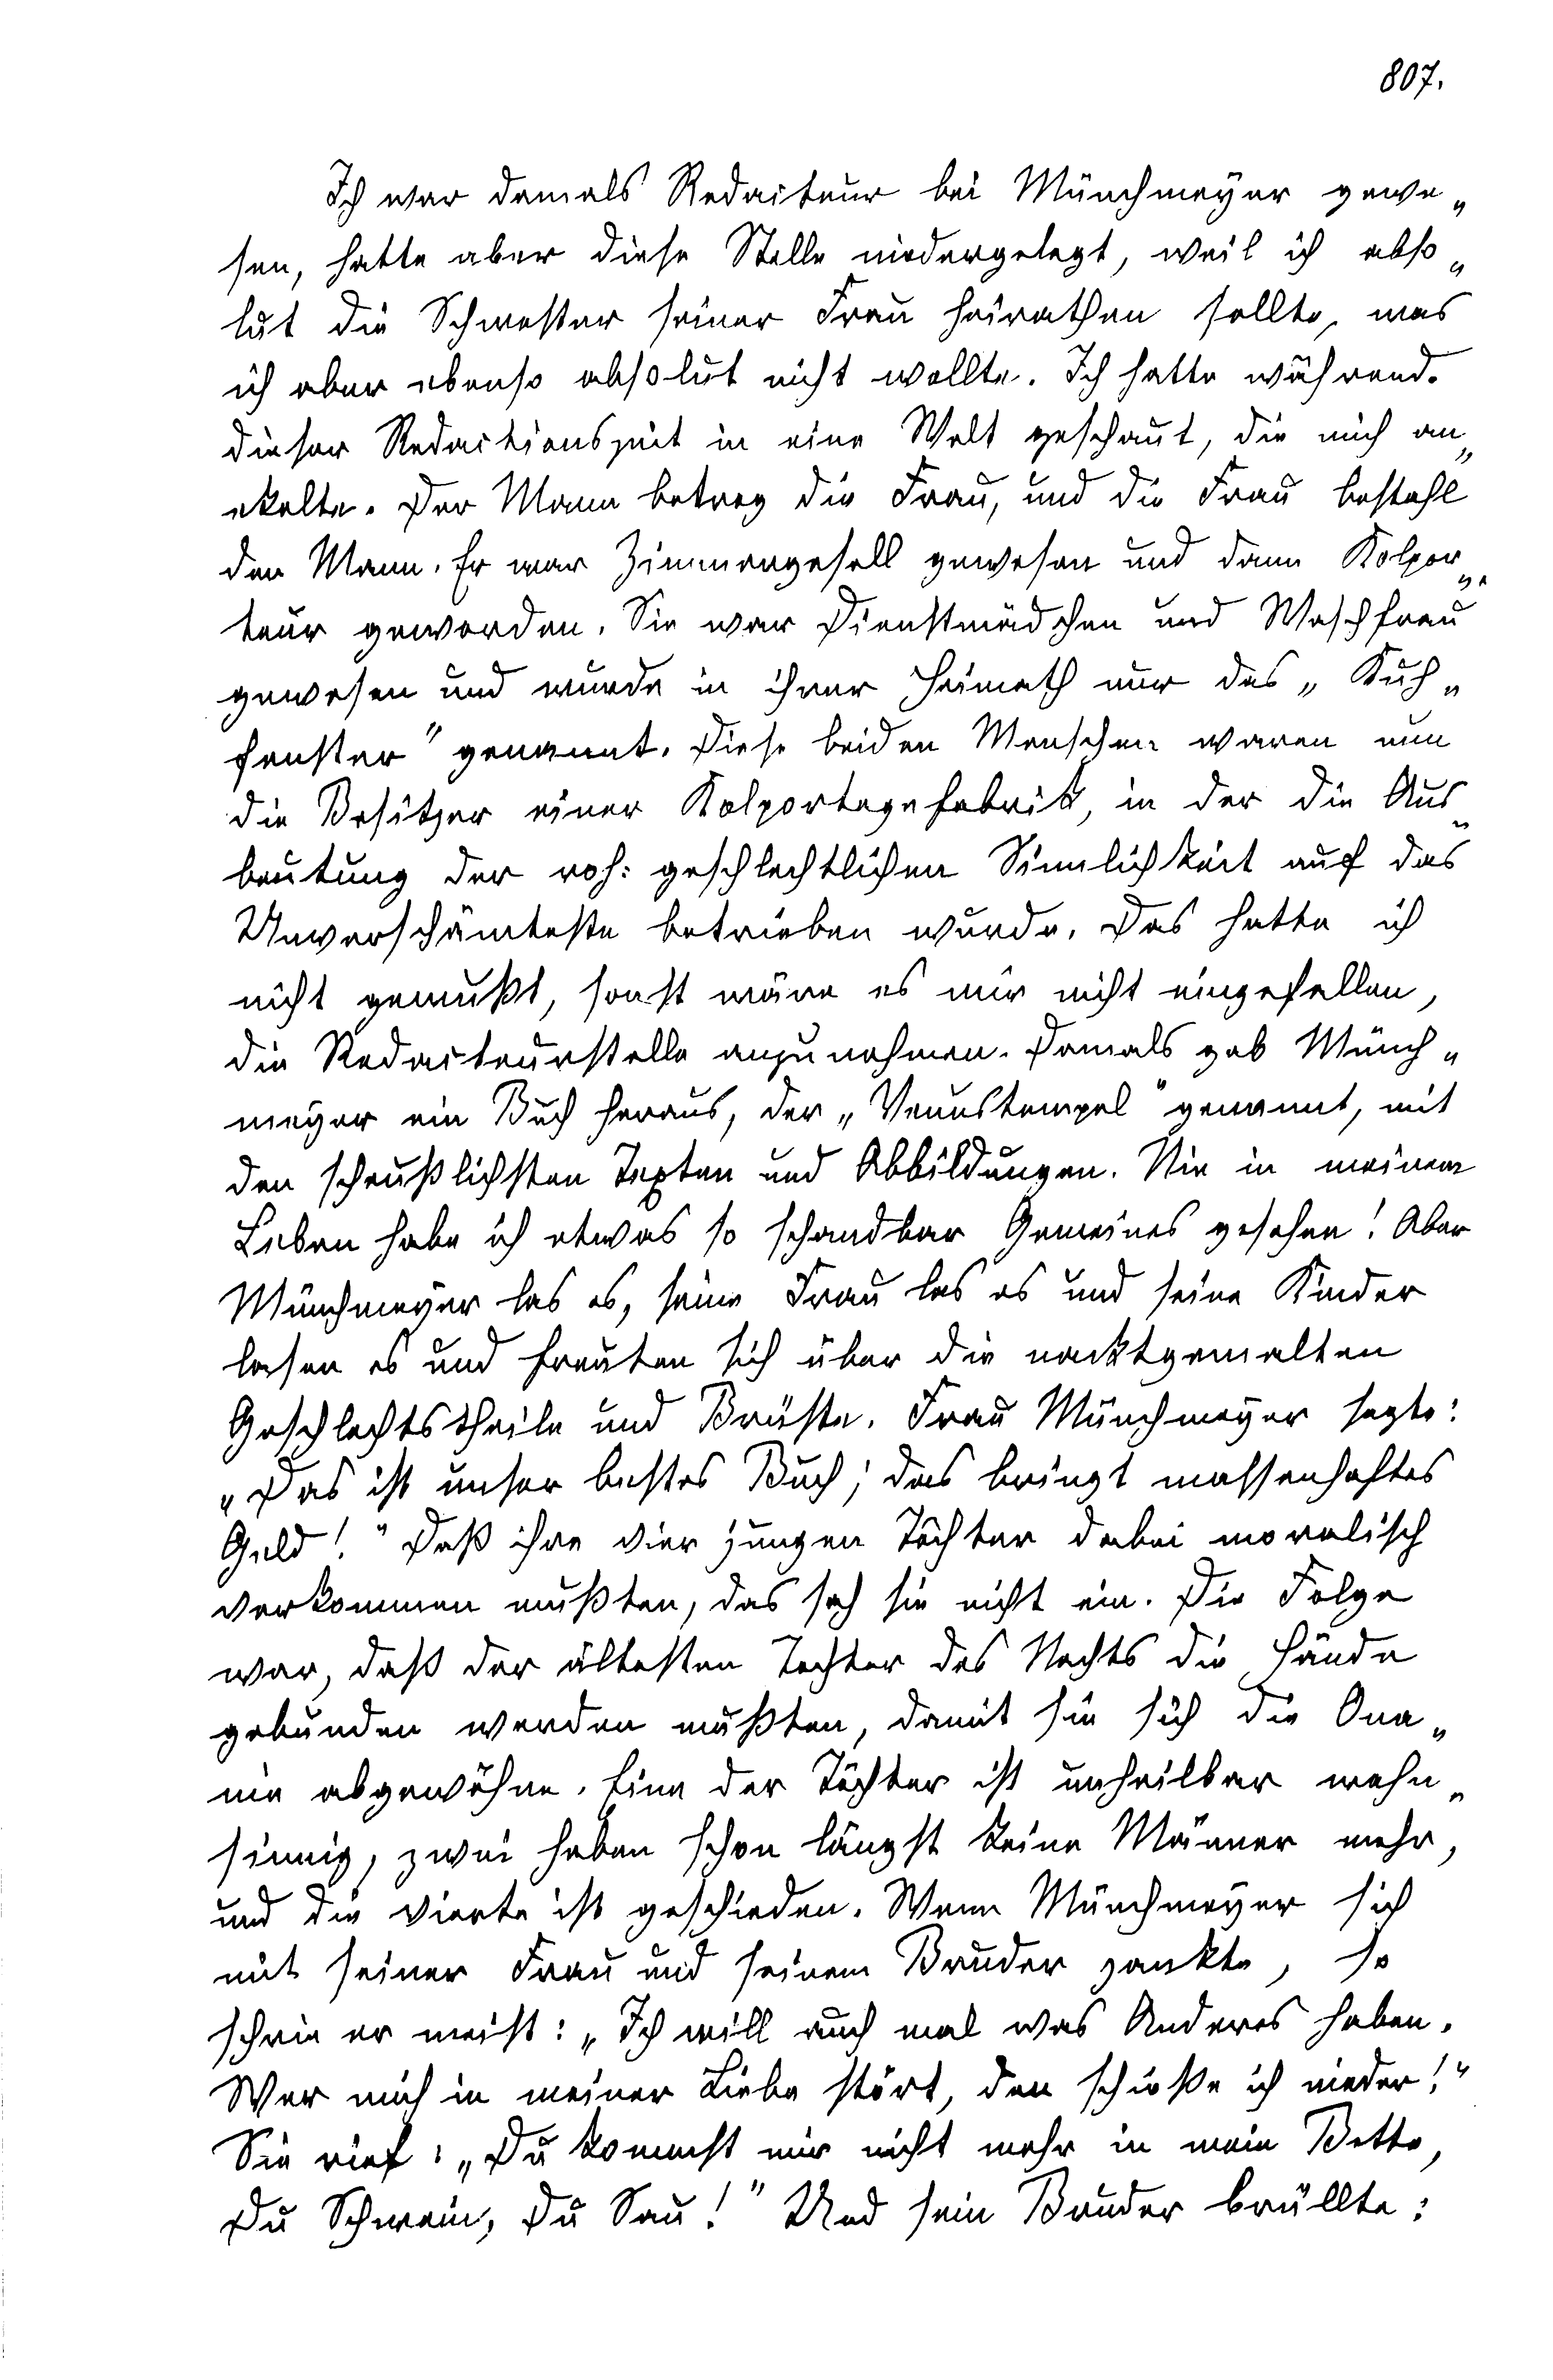 807.
Ich war damals Redacteur bei Münchmeyer gewe„
sen, hatte aber diese Stelle niedergelegt, weil ich abso„
lut die Schwester seiner Frau heirathen sollte, was
ich aber ebenso absolut nicht wollte. Ich hatte während
dieser Redactionszeit in eine Welt geschaut, die mich an„
ekelte. Der Mann betrog die Frau, und die Frau bestahl
den Mann. Er war Zimmergesell gewesen und dann Kolpor„
teur geworden. Sie war Dienstmädchen und Waschfrau
gewesen und wurde in ihrer Heimath nur das „Kuh„
fenster" genannt. Diese beiden Menschen waren nun
die Besitzer einer Kolportagefabrik, in der die Aus„
beutung der roh: geschlechtlichen Sinnlichkeit auf das
Unverschämteste betrieben wurde. Das hatte ich
nicht gewußt, sonst wäre es mir nicht eingefallen,
die Redacteurstelle anzunehmen. Damals gab Münch„
meyer ein Buch heraus, der „Venustempel" genannt, mit
den scheußlichsten Texten und Abbildungen. Nie in meinem
Leben habe ich etwas so schandbar Gemeines gesehen! Aber
Münchmeyer las es, seine Frau las es und seine Kinder
lasen es und freuten sich über die nacktgemalten
Geschlechtstheile und Brüste. Frau Münchmeyer sagte:
„Das ist unser bestes Buch; das bringt massenhaftes
Geld!" Daß ihre vier jungen Töchter dabei moralisch
verkommen mußten, das sah sie nicht ein. Die Folge
war, daß der ältesten Tochter des Nachts die Hände
gebunden werden mußten, damit sie sich die Ona„
nie abgewöhne. Eine der Töchter ist unheilbar wahn„
sinnig, zwei haben schon längst keine Männer mehr,
und die vierte ist geschieden. Wenn Münchmeyer sich
mit seiner Frau und seinem Bruder zankte, so
schrie er meist: „Ich will auch mal was Anderes haben.
Wer mich in meiner Liebe stört, den schieße ich nieder!"
Sie rief: „Du kommst mir nicht mehr in mein Bette,
Du Schwein, Du Sau!" Und sein Bruder brüllte: